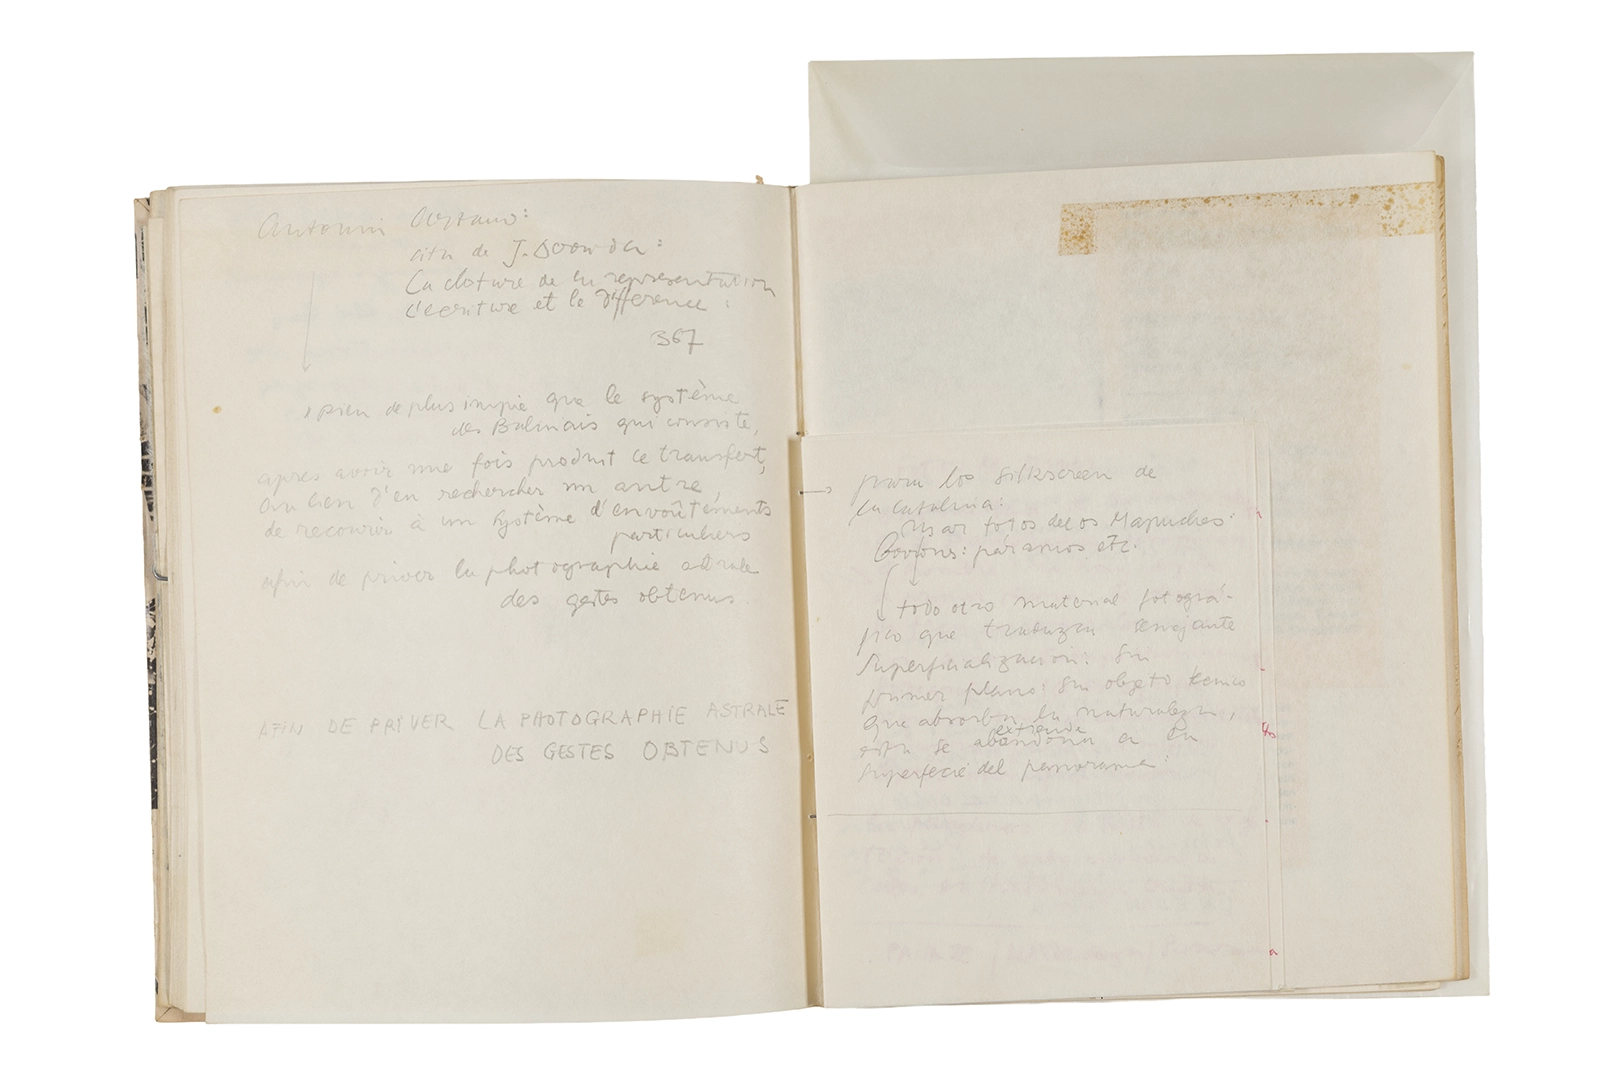 Antonin Artaud:
cita de J. Derrida:
La cloture de la representation
L'ecriture et la différence:
367
rien de plus impie que le système
des Balinais qui consiste,
apres avoir une fois produit ce transfert,
au lieu d'en rechercher un autre,
de recourir à un système d'envoûtements
particuliers
afin de priver la photographie astrale
des gestes obtenus
AFIN DE PRIVER LA PHOTOGRAPHIE ASTRALE
DES GESTES OBTENUS
para los silkscreen de
la
Usar fotos de los Mapuches:
paramos etc.
todo otro material fotográ-
fico que traduzca semejante
superficialización: sin
primer plano: sin objeto
que absorba la naturaleza,
esta se abandona extiende a la
superficie del panorama: